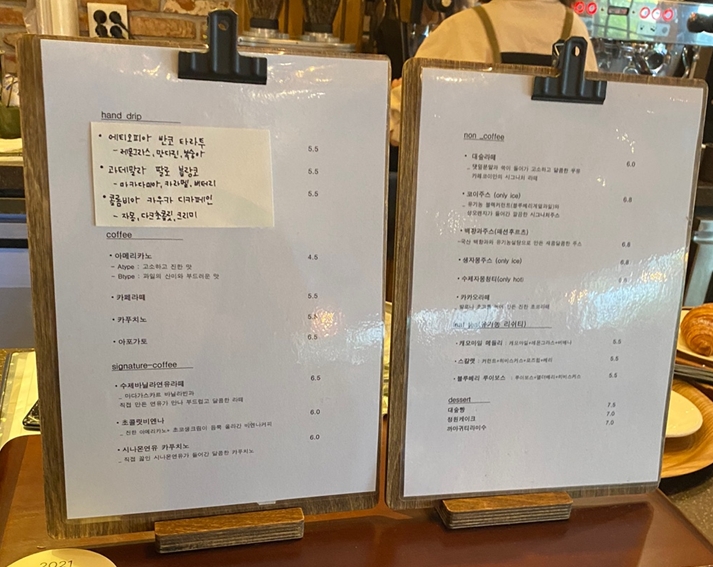 hand drip
• 에티오피아 반코 타라투
- 레몬그라스, 만다린, 복숭아
5.5
• 과테말라 팔로 블랑코
- 마카다미아, 카라멜, 버터리
5.5
• 콜롬비아 카우카 디카페인
- 자몽, 다크초콜릿, 크리미
5.5
coffee
• 아메리카노 4.5
- Atype : 고소하고 진한 맛
- Btype : 과일의 산미와 부드러운 맛
• 카페라떼 5.5
• 카푸치노 5.5
• 아포가토 6.5
signature-coffee
• 수제바닐라연유라떼 6.5
_ 마다가스카르 바닐라빈과
직접 만든 연유가 만나 부드럽고 달콤한 라떼
• 초콜릿비엔나 6.0
_ 진한 아메리카노+ 초코생크림이 듬뿍 올라간 비엔나커피
• 시나몬연유 카푸치노 6.0
_ 직접 끓인 시나몬연유가 들어간 달콤한 카푸치노
non _coffee
• 대숲라떼 6.0
_ 댓잎분말과 떡이 들어가 고소하고 달콤한 우유
카페코이만의 시그니처 라떼
• 코이주스 (only ice) 6.8
_ 유기농 블랙커런트(블루베리계열과일)와
생오렌지가 들어간 달콤한 시그니처주스
• 백향과주스(패션후르츠) 6.8
-국산 백향과와 유기농설탕으로 만든 새콤달콤한 주스
• 생자몽주스 (only ice) 6.8
• 수제자몽청티(only hot)
• 카카오라떼
(유기농 리쉬티)
• 캐모마일 메들리 : 캐모마일+레몬그라스+버베나 5.5
• 스칼렛 : 커런트+히비스커스+로즈힙+베리 5.5
• 블루베리 루이보스 : 루이보스+엘더베리+히비스커스 5.5
dessert
대숲빵 7.5
쌀흰케이크 7.0
까아귀티라미수 7.0
2021